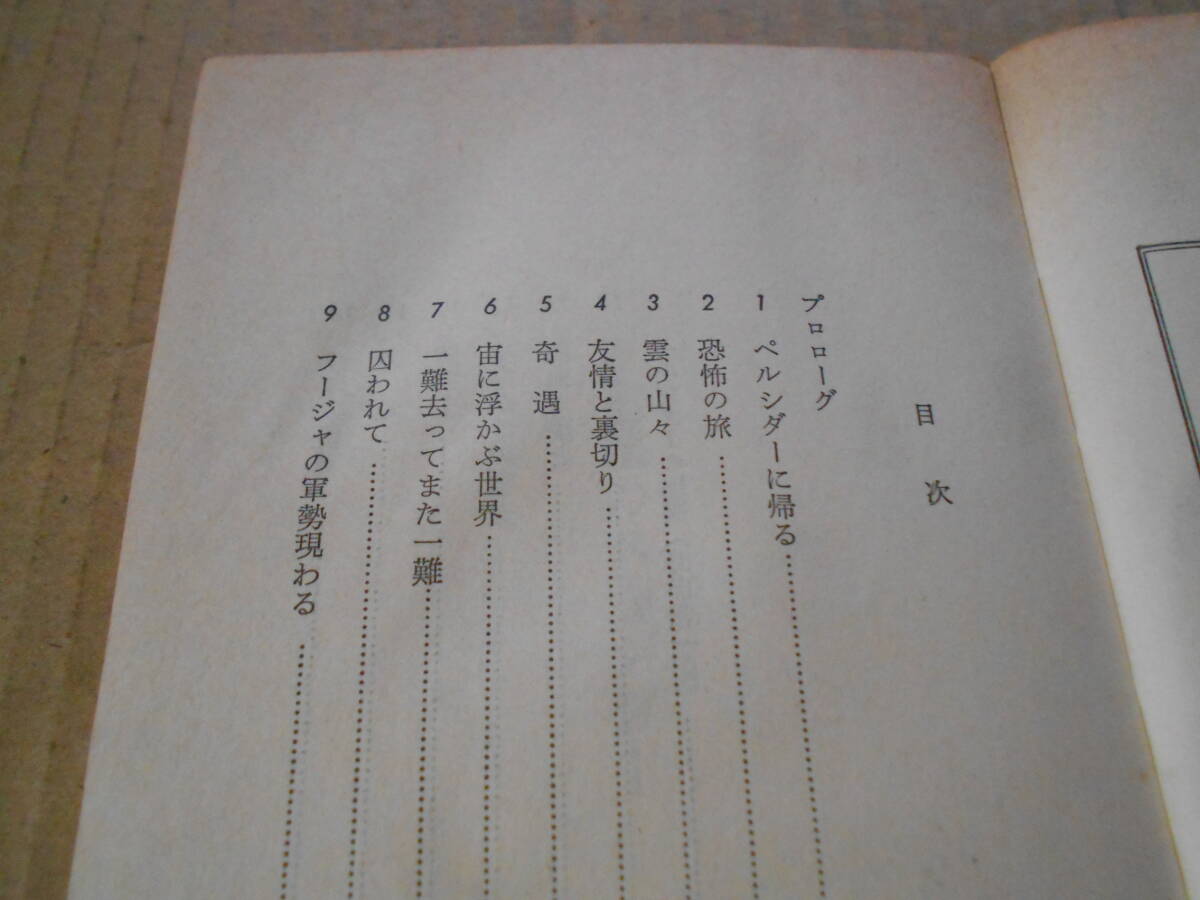 目次
プロローグ
1 ペルシダーに帰る
2 恐怖の旅
3 雲の山々
4 友情と裏切り
5 奇遇
6 宙に浮かぶ世界
7 一難去ってまた一難
8 囚われて
9 フージャの軍勢現わる